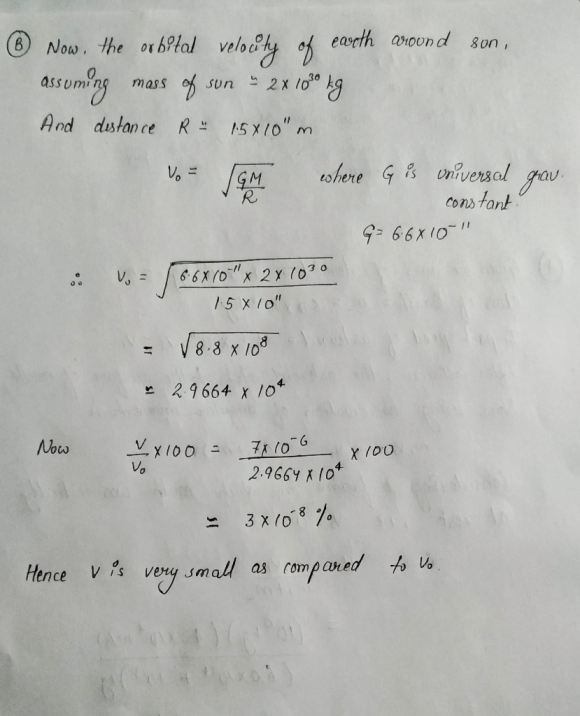 (B) Now, the orbital velocity of earth around sun,
assuming mass of sun ≃ 2 x 10³⁰ kg
And distance R ≃ 1.5 x 10¹¹ m
V₀ = √(GM/R) where G is universal grav.
constant.
G = 6.6 x 10⁻¹¹
∴ V₀ = √(6.6 x 10⁻¹¹ x 2 x 10³⁰ / 1.5 x 10¹¹)
= √(8.8 x 10⁸)
≃ 2.9664 x 10⁴
Now V/V₀ x 100 = 7 x 10⁻⁶ / 2.9664 x 10⁴ x 100
≃ 3 x 10⁻⁸ %
Hence V is very small as compared to V₀.